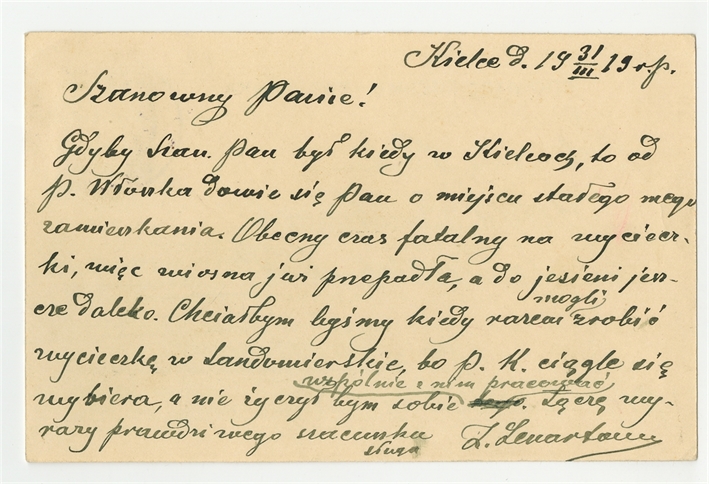 Kielce d. 19 31/III 19 r.p.
Szanowny Panie!
Gdyby Szan. Pan był kiedy w Kielcach, to od
p. Włoszka dowie się Pan o miejscu stałego mego
zamieszkania. Obecny czas fatalny na wyciecz-
ki, więc wiosna już przepadła, a do jesieni jesz-
cze daleko. Chciałbym byśmy kiedy razem mogli zrobić
wycieczkę w Sandomierskie, bo p. K. ciągle się
wybiera, a nie życzył bym sobie wspólnie z nim pracować. Łączę wy-
razy prawdziwego szacunku
sługa